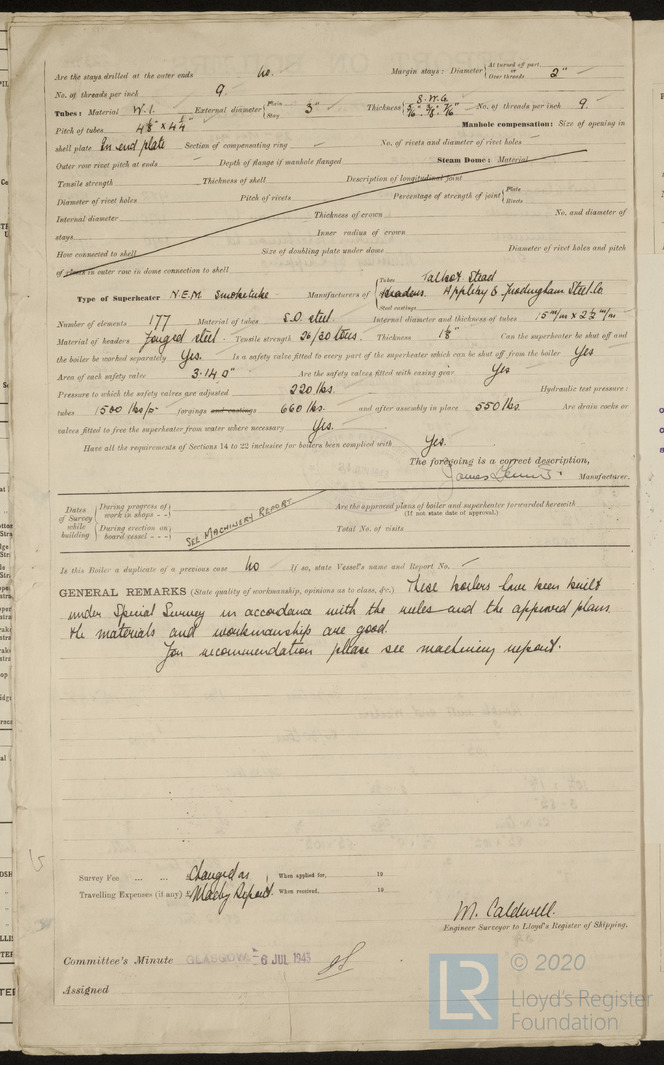 Are the stays drilled at the outer ends No. Margin stays: Diameter { At turned off part, or Over threads 2"
No. of threads per inch 9.
Tubes: Material W.I. External diameter { Plain Stay 3" Thickness { S.W.G. 5/16" 3/8" 7/16" No. of threads per inch 9.
Pitch of tubes 4 1/8" x 4 1/4" Manhole compensation: Size of opening in
shell plate In end plate Section of compensating ring No. of rivets and diameter of rivet holes
Outer row rivet pitch at ends Depth of flange if manhole flanged Steam Dome: Material
Tensile strength Thickness of shell Description of longitudinal joint
Diameter of rivet holes Pitch of rivets Percentage of strength of joint { Plate Rivets
Internal diameter Thickness of crown No. and diameter of
stays Inner radius of crown
How connected to shell Size of doubling plate under dome Diameter of rivet holes and pitch
of rivets in outer row in dome connection to shell
Type of Superheater N.E.M Smoketube Manufacturers of { Tubes Talbot Stead
Headers Appleby & Frodingham Steel Co
Steel castings
Number of elements 177 Material of tubes S.D. steel Internal diameter and thickness of tubes 15 m/m x 2 1/2 m/m
Material of headers Forged steel. Tensile strength 26/30 tons. Thickness 1 1/8" Can the superheater be shut off and
the boiler be worked separately Yes. Is a safety valve fitted to every part of the superheater which can be shut off from the boiler Yes
Area of each safety valve 3.14 " Are the safety valves fitted with easing gear Yes
Pressure to which the safety valves are adjusted 220 lbs. Hydraulic test pressure:
tubes 1500 lbs/ forgings and castings 660 lbs. and after assembly in place 550 lbs. Are drain cocks or
valves fitted to free the superheater from water where necessary Yes.
Have all the requirements of Sections 14 to 22 inclusive for boilers been complied with Yes.
The foregoing is a correct description,
James Manufacturer.
Dates of Survey while building { During progress of work in shops - - During erection on board vessel - - - } SEE MACHINERY REPORT Are the approved plans of boiler and superheater forwarded herewith
(If not state date of approval.)
Total No. of visits
Is this Boiler a duplicate of a previous case No If so, state Vessel's name and Report No.
GENERAL REMARKS (State quality of workmanship, opinions as to class, &c.) These boilers have been built
under Special Survey in accordance with the rules and the approved plans.
the materials and workmanship are good.
For recommendation please see machinery report.
Survey Fee ... ... £ Charged as When applied for, 19
Travelling Expenses (if any) £ Machy Report. When received, 19
M. Caldwell.
Engineer Surveyor to Lloyd's Register of Shipping.
Committee's Minute GLASGOW 6 JUL 1943
Assigned
LR © 2020
Lloyd's Register
Foundation